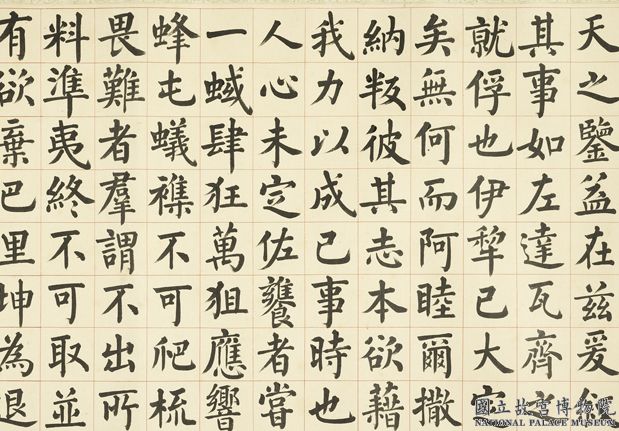 天之鑒益在茲爰
其事如左達瓦齊
就俘也伊犁已大定
矣無何而阿睦爾撒
納叛彼其志本欲藉
我力以成己事時也
人心未定佐饔者嘗
一蜮肆狂萬狙應響
蜂屯蟻襍不可爬梳
畏難者羣謂不出所
料準夷終不可取並
有欲棄巴里坤為退
國立故宮博物院
NATIONAL PALACE MUSEUM